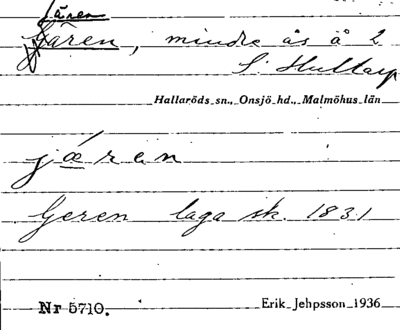 Jären
Jären, mindre ås å 2
S. Hultarp
Hallaröds sn., Onsjö hd., Malmöhus län
jæ̀ren
Geren laga sk. 1831
Nr 5710.
Erik Jehpsson 1936